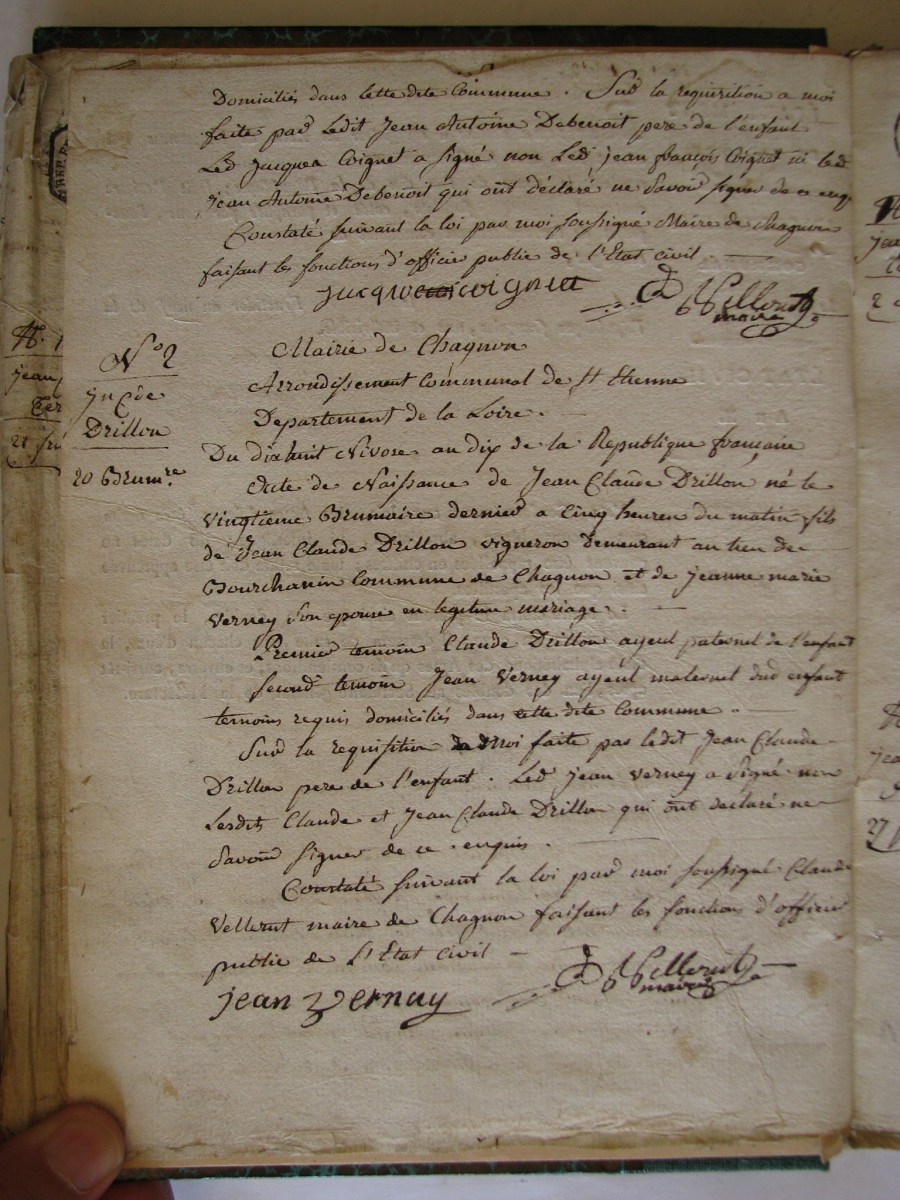 Domiciliés dans cette dite Commune. Sur la requisition a moi
faite par ledit Jean Antoine Debenoit pere de l'enfant
Led Jacques Coignet a signé non Led jean françois Coignet ni led
Jean Antoine Debenoit qui ont déclaré ne savoir signer de ce enq
Constaté suivant la loi par moi soussigné Maire de Chagnon
faisant les fonctions d'officier public de l'Etat civil
maire
Mairie de Chagnon
Arrondissement Communal de St Etienne
Departement de la Loire.
N° 2
jn Cde
Drillon
20 Brumre
Du dixhuit Nivose an dix de la Republique française
Acte de Naissance de Jean Claude Drillon né le
vingtieme Brumaire dernier a Cinq heures du matin fils
de Jean Claude Drillon vigneron demeurant au lieu de
Bourchanin Commune de Chagnon et de jeanne marie
Verney son epouse en legitime mariage.
Premier temoin Claude Drillon ayeul paternel de l'enfant
second temoin Jean Verney ayeul maternel dud enfant
temoins requis domiciliés dans cette dite Commune.
Sur la requisition a Moi faite par ledit Jean Claude
Drillon pere de l'enfant. Led jean verney a signé non
Lesdits Claude et Jean Claude Drillon qui ont declaré ne
savoir signer de ce enquis.
Constaté suivant la loi par moi soussigné Claude
Vellerut maire de Chagnon faisant les fonctions d'officier
public de L'Etat civil
jean Vernay
maire